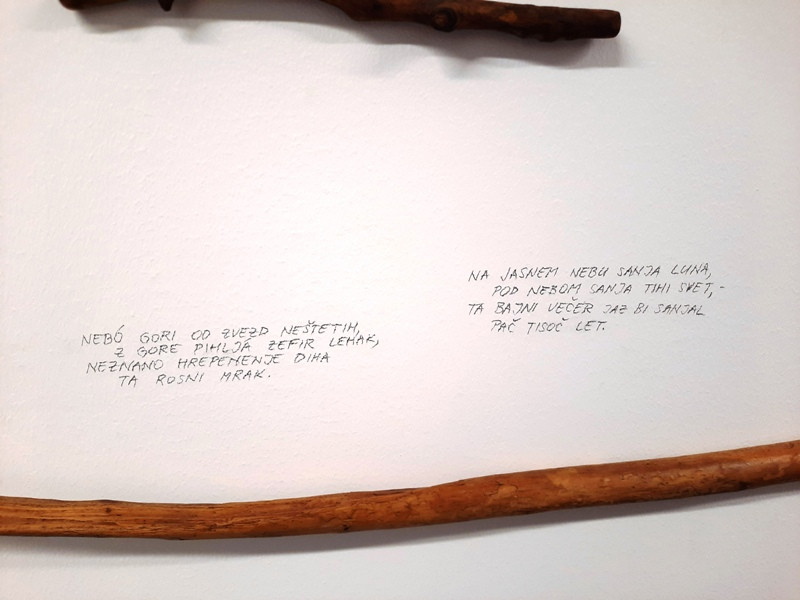 NEBÓ GORI OD ZVEZD NEŠTETIH,
Z GORE PIHLJÁ ZEFIR LEHAK,
NEZNANO HREPENENJE DIHA
TA ROSNI MRAK.
NA JASNEM NEBU SANJA LUNA,
POD NEBOM SANJA TIHI SVET, -
TA BAJNI VEČER JAZ BI SANJAL
PAČ TISOČ LET.